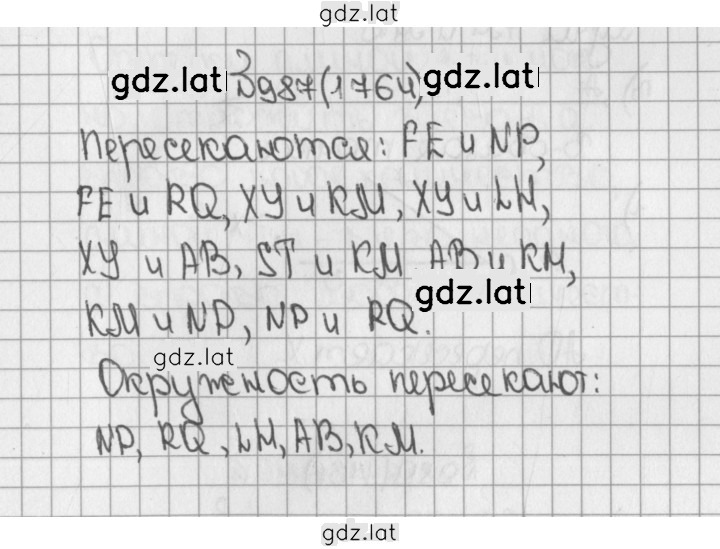 gdz.lat
gdz.lat №987(1764) gdz.lat
Пересекаются: FE и NP,
FE и RQ, XY и KM, XY и LH,
XY и AB, ST и KM AB и KM,
gdz.lat
KM и NP, NP и RQ.
gdz.lat
Окружность пересекают:
NP, RQ, LH, AB, KM.
gdz.lat